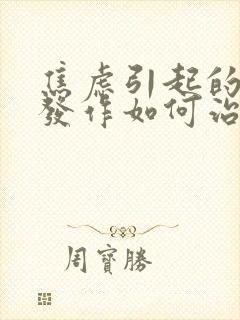 焦虑引起的
發作如何治
周寶勝